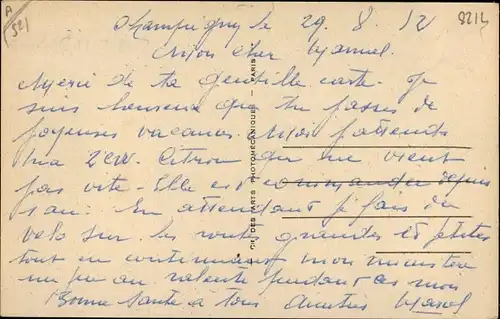 A
521
Champigny le 29. 8. 12
8214
Mon cher Marcel.
Merci de ta gentille carte. Je
suis heureux que tu passes de
joyeuses vacances. Moi j'attends
ma 2 CV. Citroen qui ne vient
pas vite. Elle est commandée depuis
1 an. En attendant je fais du
velo sur les routes grandes et petites
tout en continuant mon
un peu au ralenti pendant ces mois
Bonne santé à tous Amitiés Marcel
CIE DES ARTS PHOTOMÉCANIQUES - PARIS